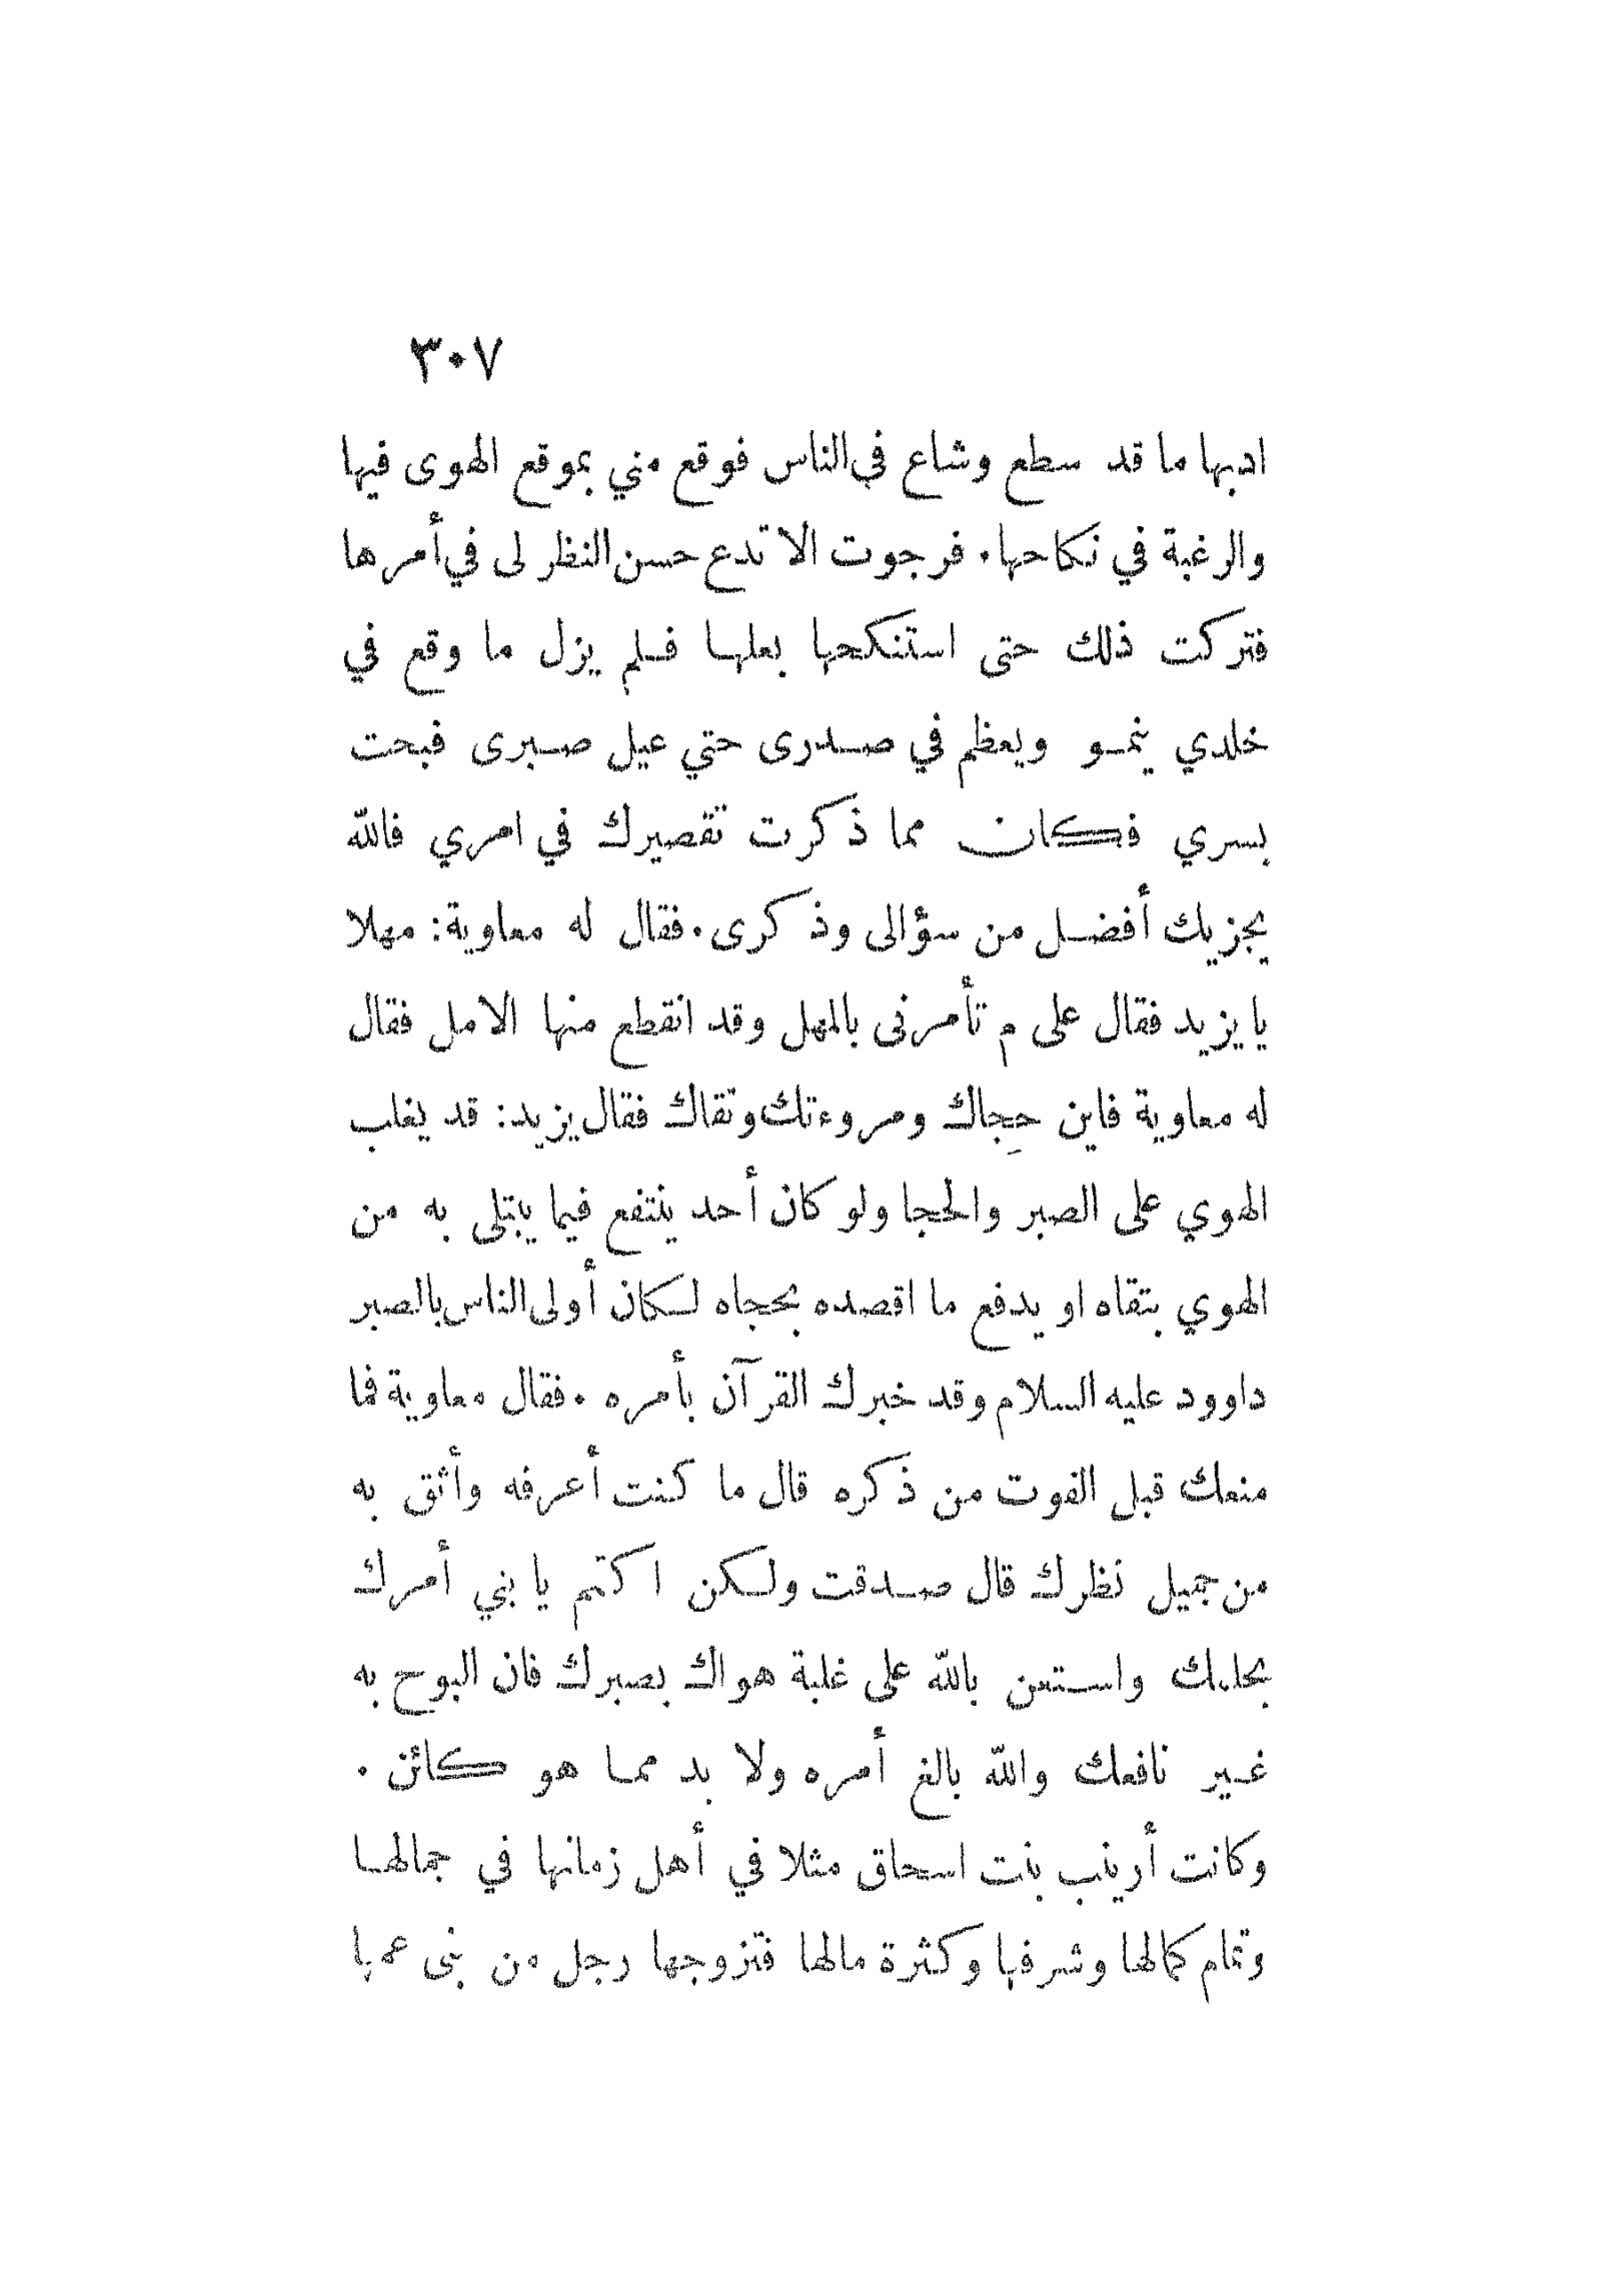 ٣٠٧
ادبها ما قد سطع وشاع في الناس فوقع مني بموقع الهوى فيها
والرغبة في نكاحها. فرجوت الا تدع حسن النظر لى في أمرها
فتركت ذلك حتى استنكحها بعلها فلم يزل ما وقع في
خلدي ينمو ويعظم في صدرى حتي عيل صبرى فبحت
بسري فكان مما ذكرت تقصيرك في امري فالله
يجزيك أفضل من سؤالى وذكرى. فقال له معاوية: مهلا
يا يزيد فقال على م تأمرنى بالمهل وقد انقطع منها الامل فقال
له معاوية فاين حِجاك ومروءتك وتقاك فقال يزيد: قد يغلب
الهوي على الصبر والحجا ولو كان أحد ينتفع فيما يبتلى به من
الهوي بتقاه او يدفع ما اقصده بحجاه لكان أولى الناس بالصبر
داوود عليه السلام وقد خبرك القرآن بأمره. فقال معاوية فما
منعك قبل الفوت من ذكره قال ما كنت أعرفه وأثق به
من جميل نظرك قال صدقت ولكن اكتم يا بني أمرك
بحلمك واستعن بالله على غلبة هواك بصبرك فان البوح به
غير نافعك والله بالغ أمره ولا بد مما هو كائن.
وكانت أرينب بنت اسحاق مثلا في أهل زمانها في جمالها
وتمام كمالها وشرفها وكثرة مالها فتزوجها رجل من بنى عمها